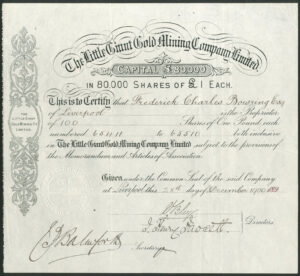 The Little Giant Gold Mining Company Limited.
CAPITAL £80,000
IN 80,000 SHARES OF £1 EACH.
This is to Certify that Frederick Charles Bowring Esq
of Liverpool is the Proprietor
of 100 Shares of One Pound each
numbered to both inclusive
in The Little Giant Gold Mining Company Limited subject to the provisions of
the Memorandum and Articles of Association
Given under the Common Seal of the said Company
at Liverpool this day of December
Directors
Secretary
THE LITTLE GIANT
GOLD MINING
COMPANY
LIMITED